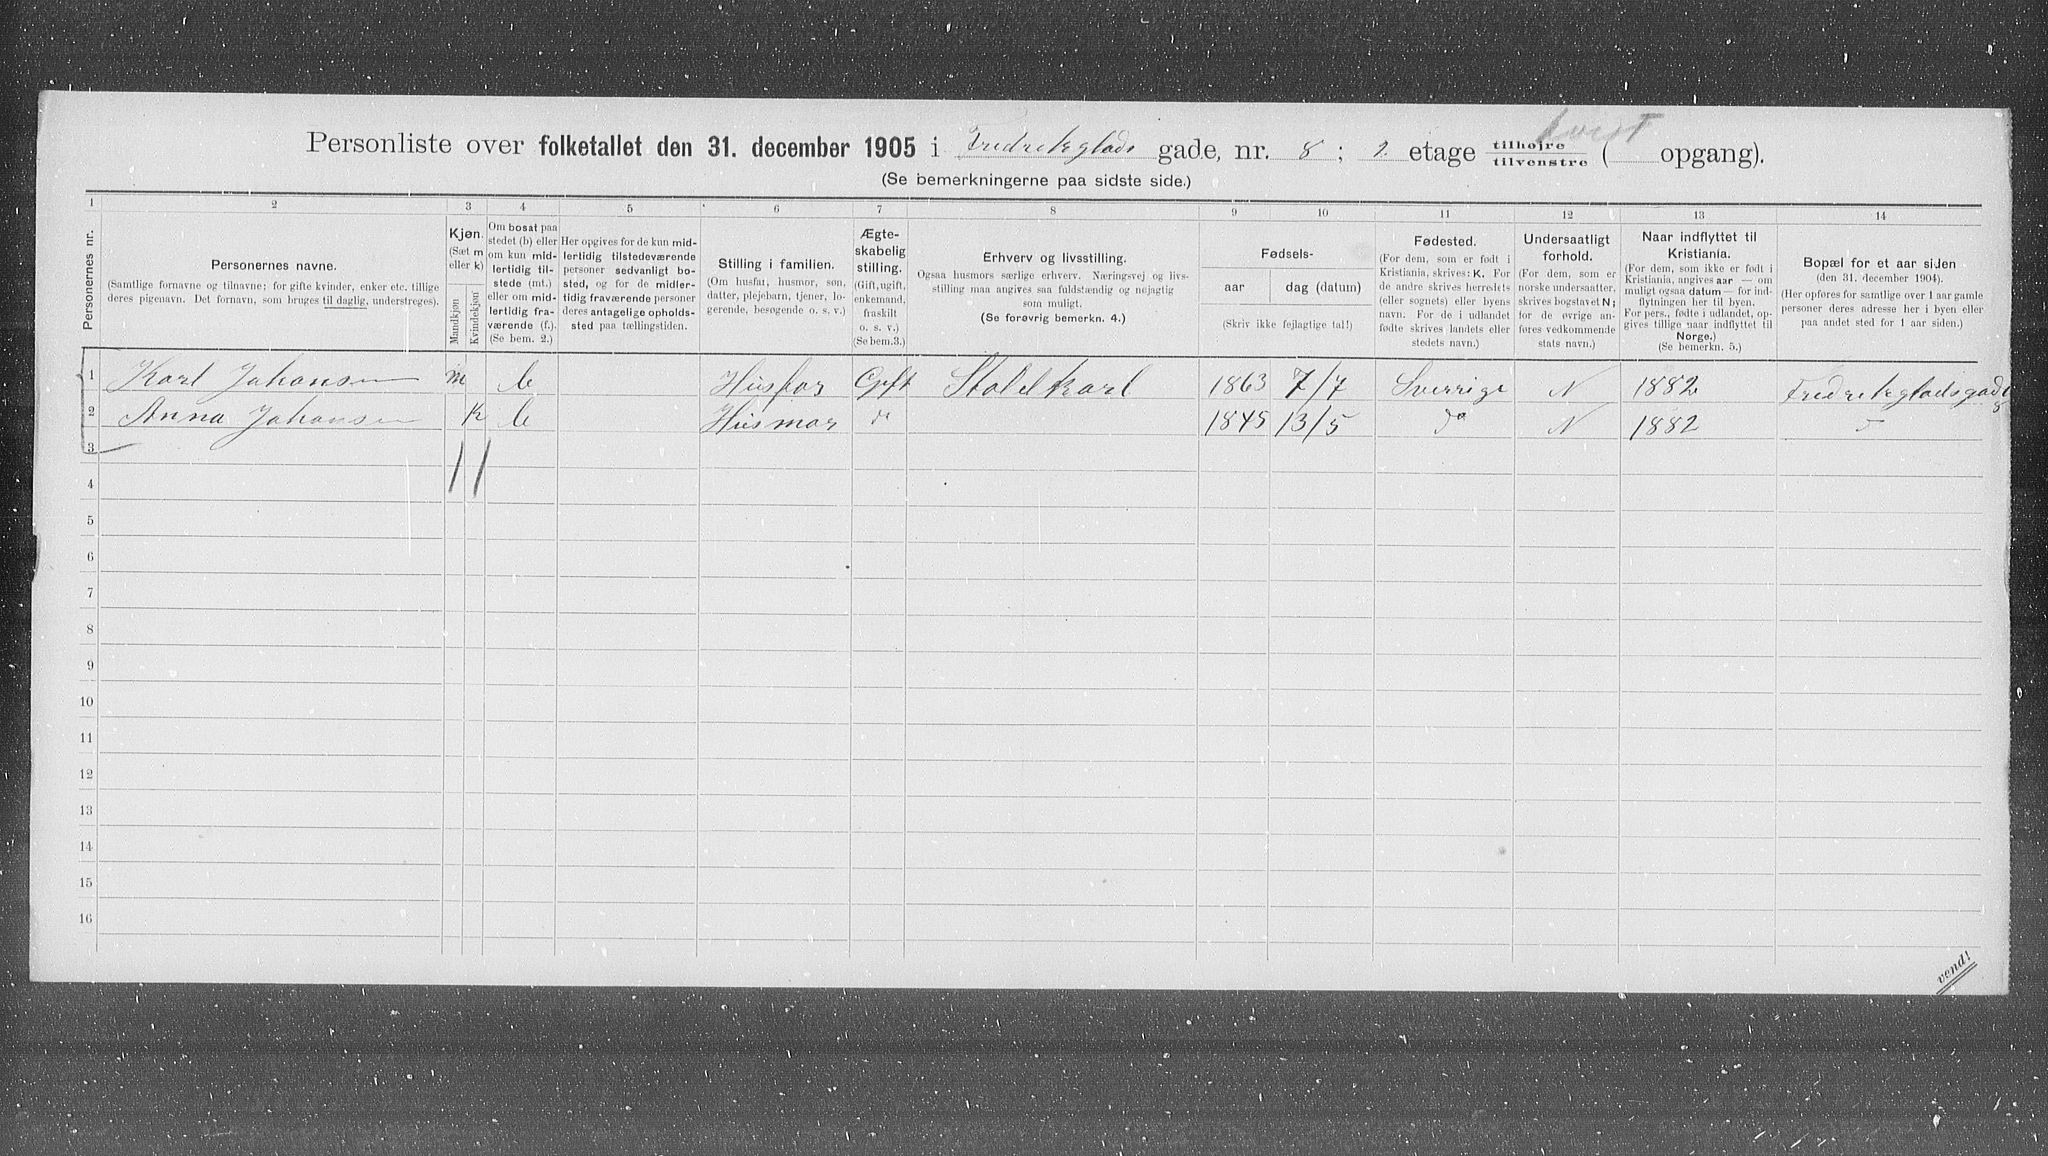 Kvist
Personliste over folketallet den 31. december 1905 i Fredrikglads gade, nr. 8; 2. etage tilhøjre tilvenstre ( opgang).
(Se bemerkningerne paa sidste side.)
1 2 3 4 5 6 7 8 9 10 11 12 13 14
Personernes nr.
Personernes navne.
(Samtlige fornavne og tilnavne; for gifte kvinder, enker etc. tillige
deres pigenavn. Det fornavn, som bruges til daglig, understreges).
Kjøn.
(Sæt m
eller k)
Mandkjøn
Kvindekjøn
Om bosat paa
stedet (b) eller
om kun mid-
lertidig til-
stede (mt.)
eller om mid-
lertidig fra-
værende (f.).
(Se bem. 2.)
Her opgives for de kun mid-
lertidig tilstedeværende
personer sedvanligt bo-
sted, og for de midler-
tidig fraværende personer
deres antagelige opholds-
sted paa tællingstiden.
Stilling i familien.
(Om husfar, husmor, søn,
datter, plejebarn, tjener, lo-
gerende, besøgende o. s. v.)
Ægte-
skabelig
stilling.
(Gift, ugift,
enkemand,
fraskilt
o. s. v.)
(Se bem.3.)
Erhverv og livsstilling.
Ogsaa husmors særlige erhverv. Næringsvej og livs-
stilling maa angives saa fuldstændig og nøjagtig
som muligt.
(Se forøvrig bemerkn. 4.)
Fødsels-
aar
dag (datum)
(Skriv ikke fejlagtige tal!)
Fødested.
(For dem, som er født i
Kristiania, skrives: K. For
de andre skrives herredets
(eller sognets) eller byens
navn. For de i udlandet
fødte skrives landets eller
stedets navn.)
Undersaatligt
forhold.
(For dem, som er
norske undersaatter,
skrives bogstavet N;
for de øvrige an-
føres vedkommende
stats navn.)
Naar indflyttet til
Kristiania.
(For dem, som ikke er født i
Kristiania, angives aar — om
muligt ogsaa datum — for ind-
flytningen her til byen.
For pers., fødte i udlandet, op-
gives tillige naar indflyttet til
Norge.)
(Se bemerkn. 5.)
Bopæl for et aar siden
(den 31. december 1904).
(Her opføres for samtlige over 1 aar gamle
personer deres adresse her i byen eller
paa andet sted for 1 aar siden.)
1 Karl Johansen m b Husfar Gift Staldkarl 1863 7/7 Sverrige N 1882 Fredrikgladsgade 8
2 Anna Johansen K b Husmor do 1845 13/5 do N 1882
3
4
5
6
7
8
9
10
11
12
13
14
15
16
vend!